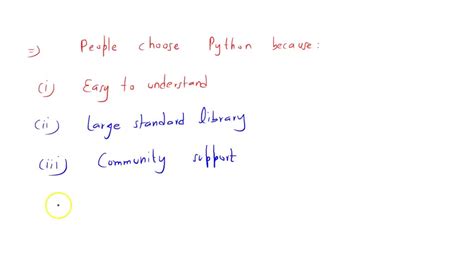 =) People choose Python because:
(i) Easy to understand
(ii) Large standard library
(iii) Community support